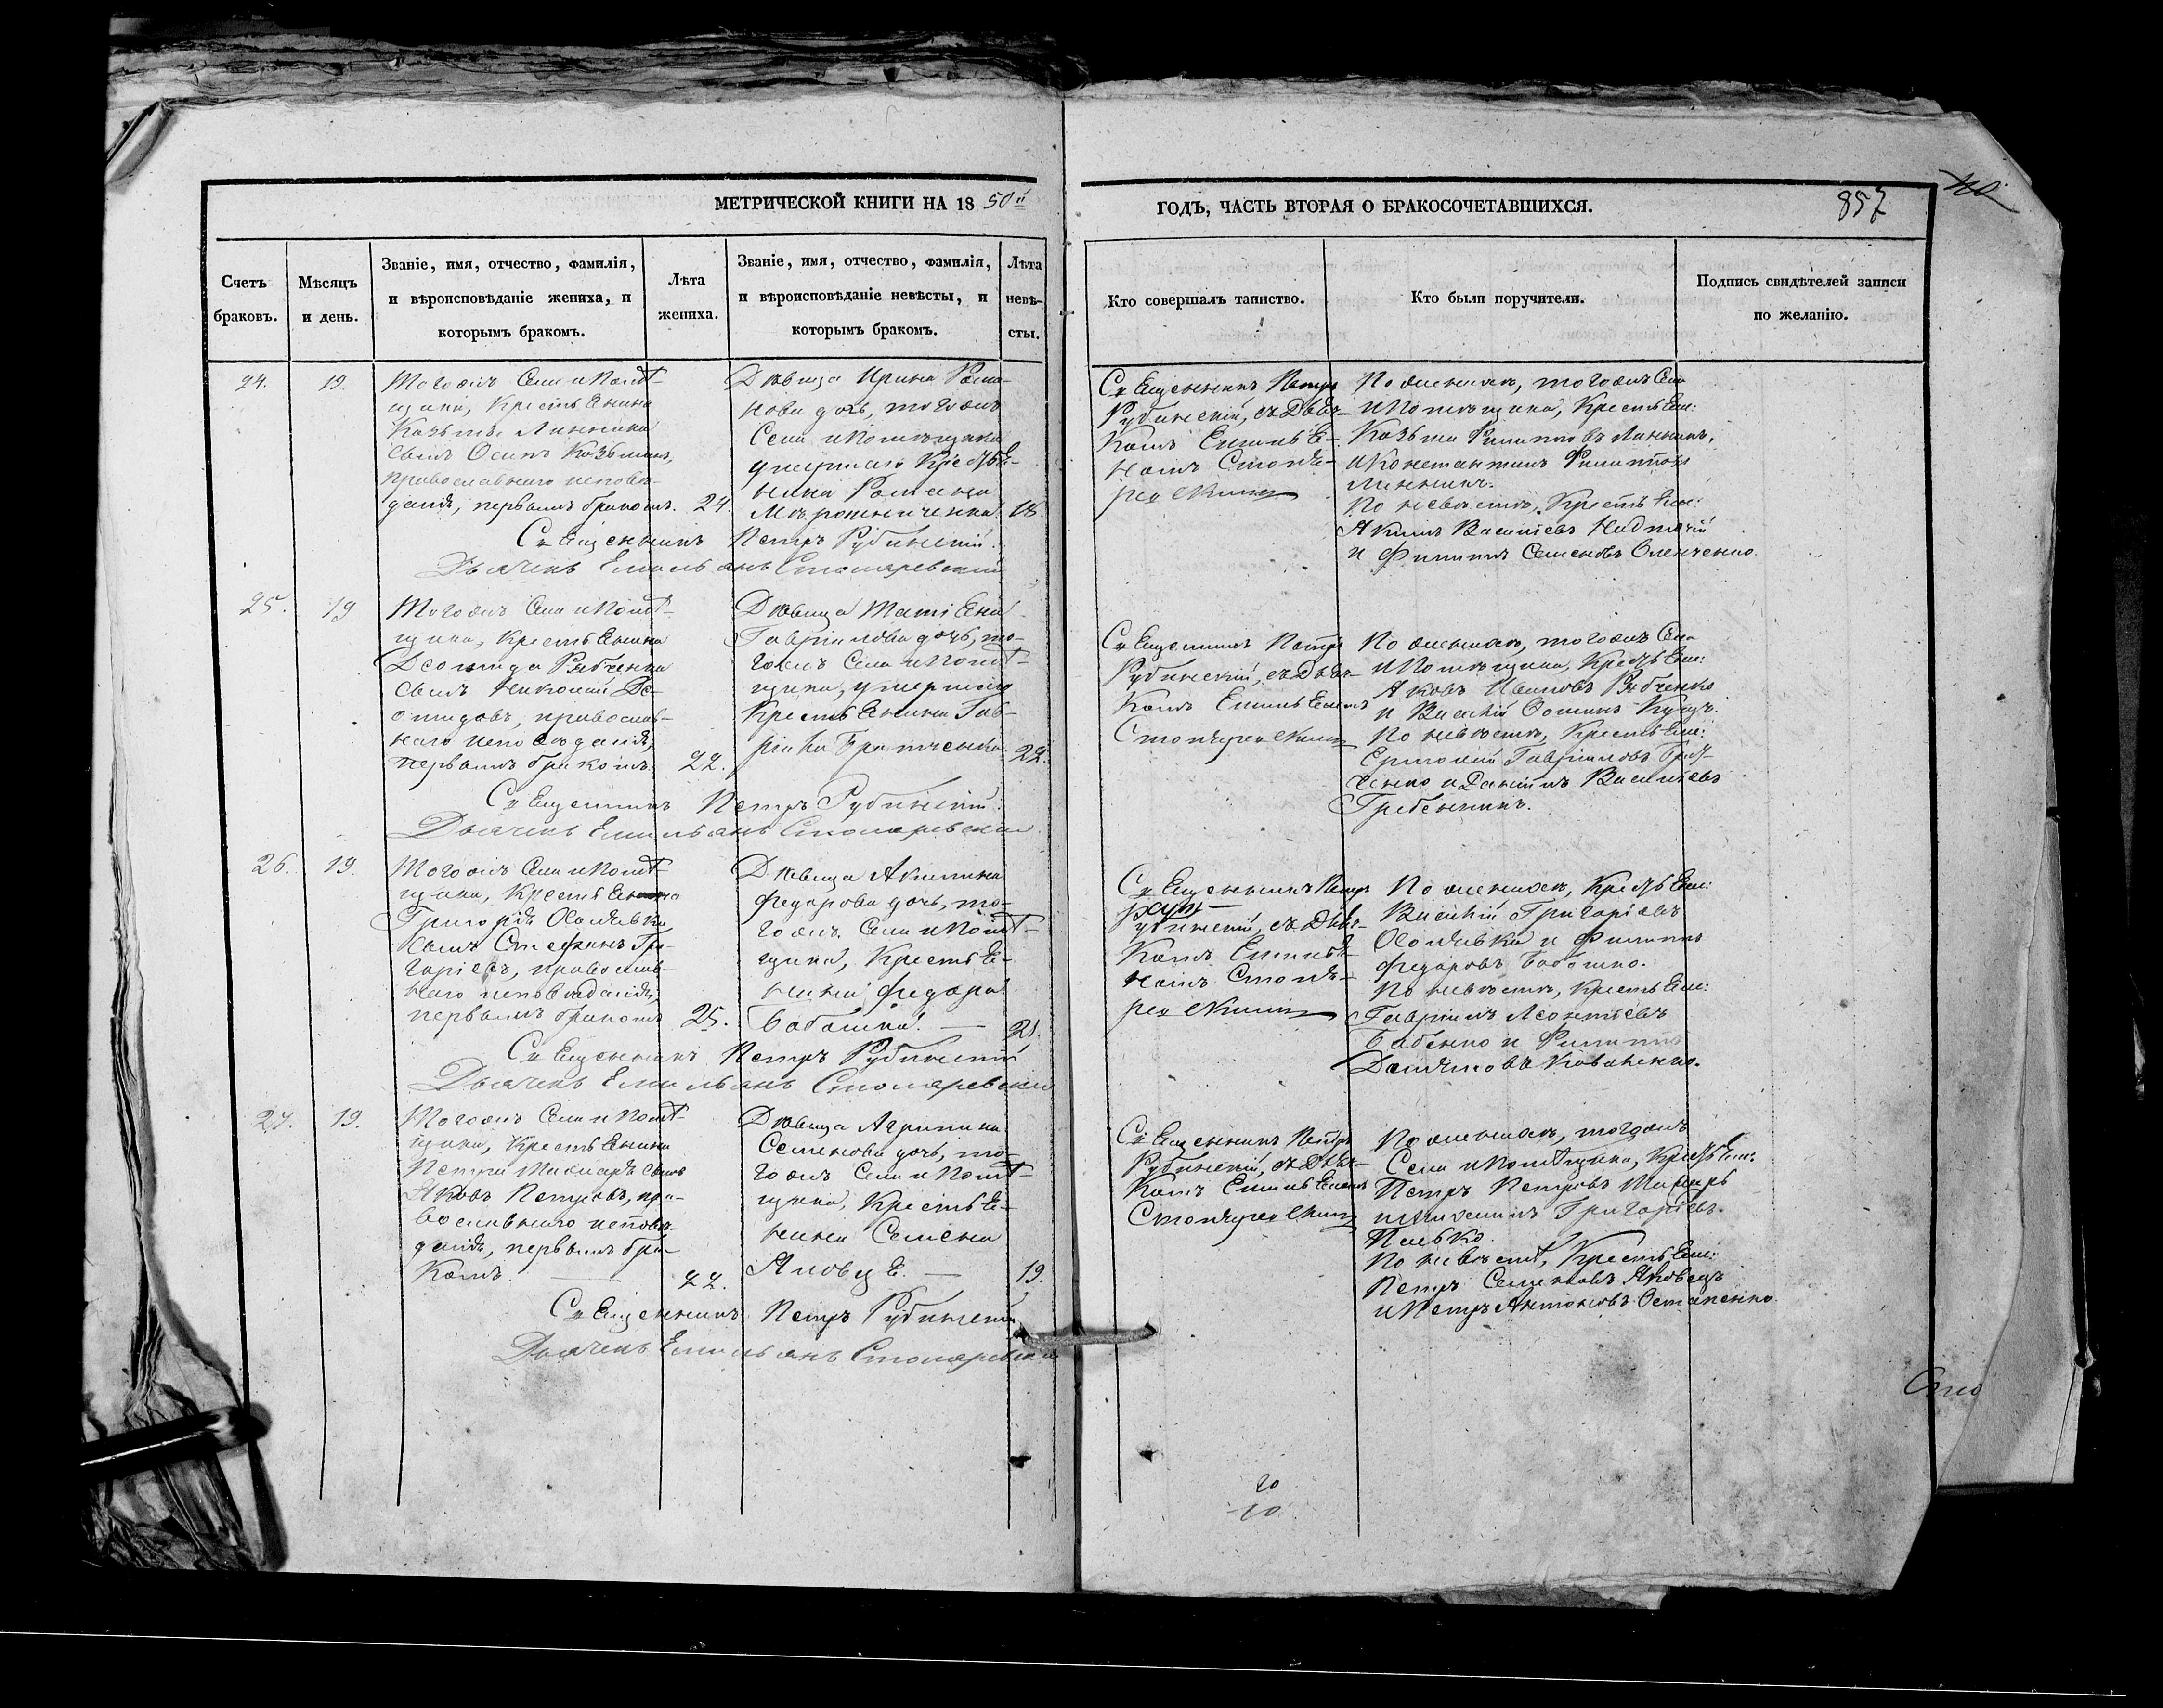 МЕТРИЧЕСКОЙ КНИГИ НА 1850й
ГОДЪ, ЧАСТЬ ВТОРАЯ О БРАКОСОЧЕТАВШИХСЯ.
857
Счетъ браковъ.
Мѣсяцъ и день.
Званіе, имя, отчество, фамилія,
и вѣроисповѣданіе жениха, и
которымъ бракомъ.
Лѣта
жениха.
Званіе, имя, отчество, фамилія,
и вѣроисповѣданіе невѣсты, и
которымъ бракомъ.
Лѣта
невѣ-
сты.
Кто совершалъ таинство.
Кто были поручители.
Подпись свидѣтелей записи
по желанію.
24.
19.
Тогожъ Села
Крестьянина
Козьмы Линника
сынъ Осипъ Козьминъ,
православнаго исповѣ-
данія, первымъ бракомъ.
24.
Дѣвица Ирина Рома-
нова дочь, тогожъ
Села
умершаго Крестья-
нина Романа
18.
Священникъ Петръ
Рубинскій, съ Дьяч-
комъ Емилья-
номъ Столя-
ревскимъ
По женихѣ, тогожъ Села
Крестьяне:
Козьма Филипповъ Линникъ,
и Константинъ Филипповъ
Линникъ.
По невѣстѣ, Крестьяне:
Акимъ Васильевъ
и Филиппъ Семеновъ
Священникъ Петръ Рубинскій.
Дьячекъ Емильянъ Столяревскій
25.
19
Тогожъ Села
Крестьянина
Леонида Рябченка
сынъ Николай Ле-
онидовъ, православ-
наго исповѣданія,
первымъ бракомъ.
22.
Дѣвица Татіяна
Гавріилова дочь, то-
гожъ Села
умершаго
Крестьянина Гав-
ріила
22.
Священникъ Петръ
Рубинскій, съ Дьяч-
комъ Емильяномъ
Столяревскимъ
По женихѣ, тогожъ Села
Крестьяне:
Яковъ Ивановъ Рябченко
и Василій Фоминъ
По невѣстѣ, Крестьяне:
Ермолай Гавріиловъ
и Даніилъ Васильевъ
Гребенникъ.
Священникъ Петръ Рубинскій.
Дьячекъ Емильянъ Столяревскій
26.
19.
Тогожъ Села
Крестьянина
Григорія
сынъ Стефанъ Гри-
горіевъ, православ-
наго исповѣданія,
первымъ бракомъ
25.
Дѣвица Акилина
Федорова дочь, то-
гожъ Села
Крестья-
нина Федора
Бабашка. —
21.
Священникъ Петръ
Рубинскій, съ Дьяч-
комъ Емилья-
номъ Столя-
ревскимъ
По женихѣ, Крестьяне:
Василій Григоріевъ
и Филиппъ
Федоровъ Бабашко.
По невѣстѣ, Крестьяне:
Гавріилъ Леонтіевъ
Бабенко и Филиппъ
Даниловъ Коваленко.
Священникъ Петръ Рубинскій
Дьячекъ Емильянъ Столяревскій
27.
19.
Тогожъ Села
Крестьянина
Петра сынъ
Яковъ Петровъ, пра-
вославнаго исповѣ-
данія, первымъ бра-
комъ. —
22.
Дѣвица Агрипина
Семенова дочь, то-
гожъ Села
Крестья-
нина Семена
Яковца. —
19.
Священникъ Петръ
Рубинскій, съ Дьяч-
комъ Емильяномъ
Столяревскимъ
По женихѣ, тогожъ
Села Крестьяне:
Петръ Петровъ
Григоріевъ
По невѣстѣ, Крестьяне:
Петръ Семеновъ Яковецъ
и Петръ Антоновъ Остапенко.
Священникъ Петръ Рубинскій
Дьячекъ Емильянъ Столяревскій